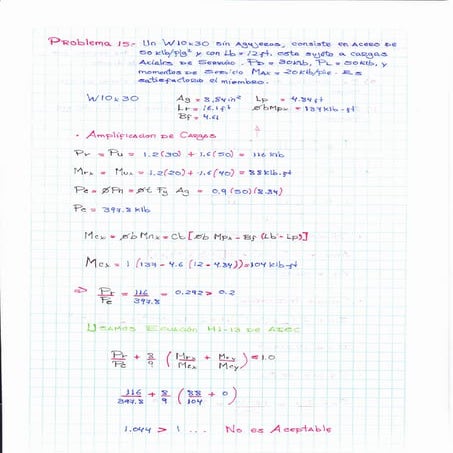 Problema 15.- Un W10x30 sin Agujeros, consiste en Acero de
50 klb/plg² y con Lb = 12ft. esta sujeto a cargas
Axiales de Servicio. PD = 30klb, PL = 50klb, y
momentos de Servicio MAX = 20klb/pie. Es
satisfactorio el miembro.
W10x30 Ag = 8.84in² Lp = 4.84ft
Lr = 16.1ft ØbMpx = 137klb-ft
Bf = 4.61
• Amplificacion de Cargas
Pr = Pu = 1.2(30) + 1.6(50) = 116 klb
Mrx = Mux = 1.2(20) + 1.6(40) = 88klb.ft
Pc = ØPn = Øt Fy Ag = 0.9(50)(8.84)
Pc = 397.8 klb
Mcx = Øb Mnx = Cb[Øb Mpx - Bf (Lb - Lp)]
Mcx = 1 (137 - 4.6 (12 - 4.84)) = 104klb-ft
⇒ Pr/Pc = 116/397.8 = 0.292 > 0.2
Usamos Ecuación H1-1a de AISC
Pr/Pc + 8/9 (Mrx/Mcx + Mry/Mcy) ≤ 1.0
116/397.8 + 8/9 (88/104 + 0)
1.044 > 1 ... No es Aceptable